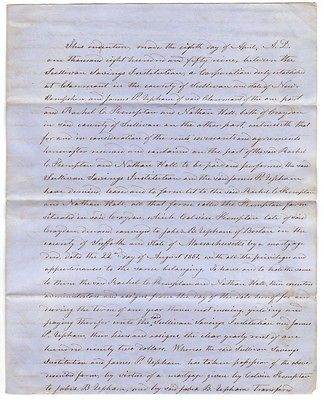 This indenture, made the eighth day of April, A.D.
one thousand eight hundred and fifty nine, between the
Sullivan Savings Institution, a Corporation duly established
at Claremont in the county of Sullivan and state of New
Hampshire and James P. Upham of said Claremont of the one part
and Rachel C. Kempton and Nathan Hall both of Croydon
in said county of Sullivan on the other part witnesseth that
for and in consideration of the rents covenants and agreements
hereinafter reserved and contained on the part of the said Rachel
C. Kempton and Nathan Hall to be paid and performed, the said
Sullivan Savings Institution and the said James P. Upham
have demised leased and to farm let to the said Rachel C. Kempton
and Nathan Hall, all that farm called the Kempton farm
situated in said Croydon, which Calvin Kempton late of said
Croydon deceased conveyed to Jabez B. Upham of Boston in the
county of Suffolk and State of Massachusetts by a mortgage
deed dated the 22nd day of August 1851, with all the privileges and
appurtenances to the same belonging. To have and to hold the same
to them the said Rachel C. Kempton and Nathan Hall, their executors
administrators and assigns from the day of the date hereof for and
during the term of one year thence next ensuing, yielding and
paying therefor unto the Sullivan Savings Institution and James
P. Upham their heirs and assigns the clear yearly rent of one
hundred ninety two dollars. Whereas the said Sullivan Savings
Institution and James P. Upham has taken possession of the above
mentioned farm, by virtue of a mortgage given by Calvin Kempton
to Jabez B. Upham, and by said Jabez B. Upham transferred